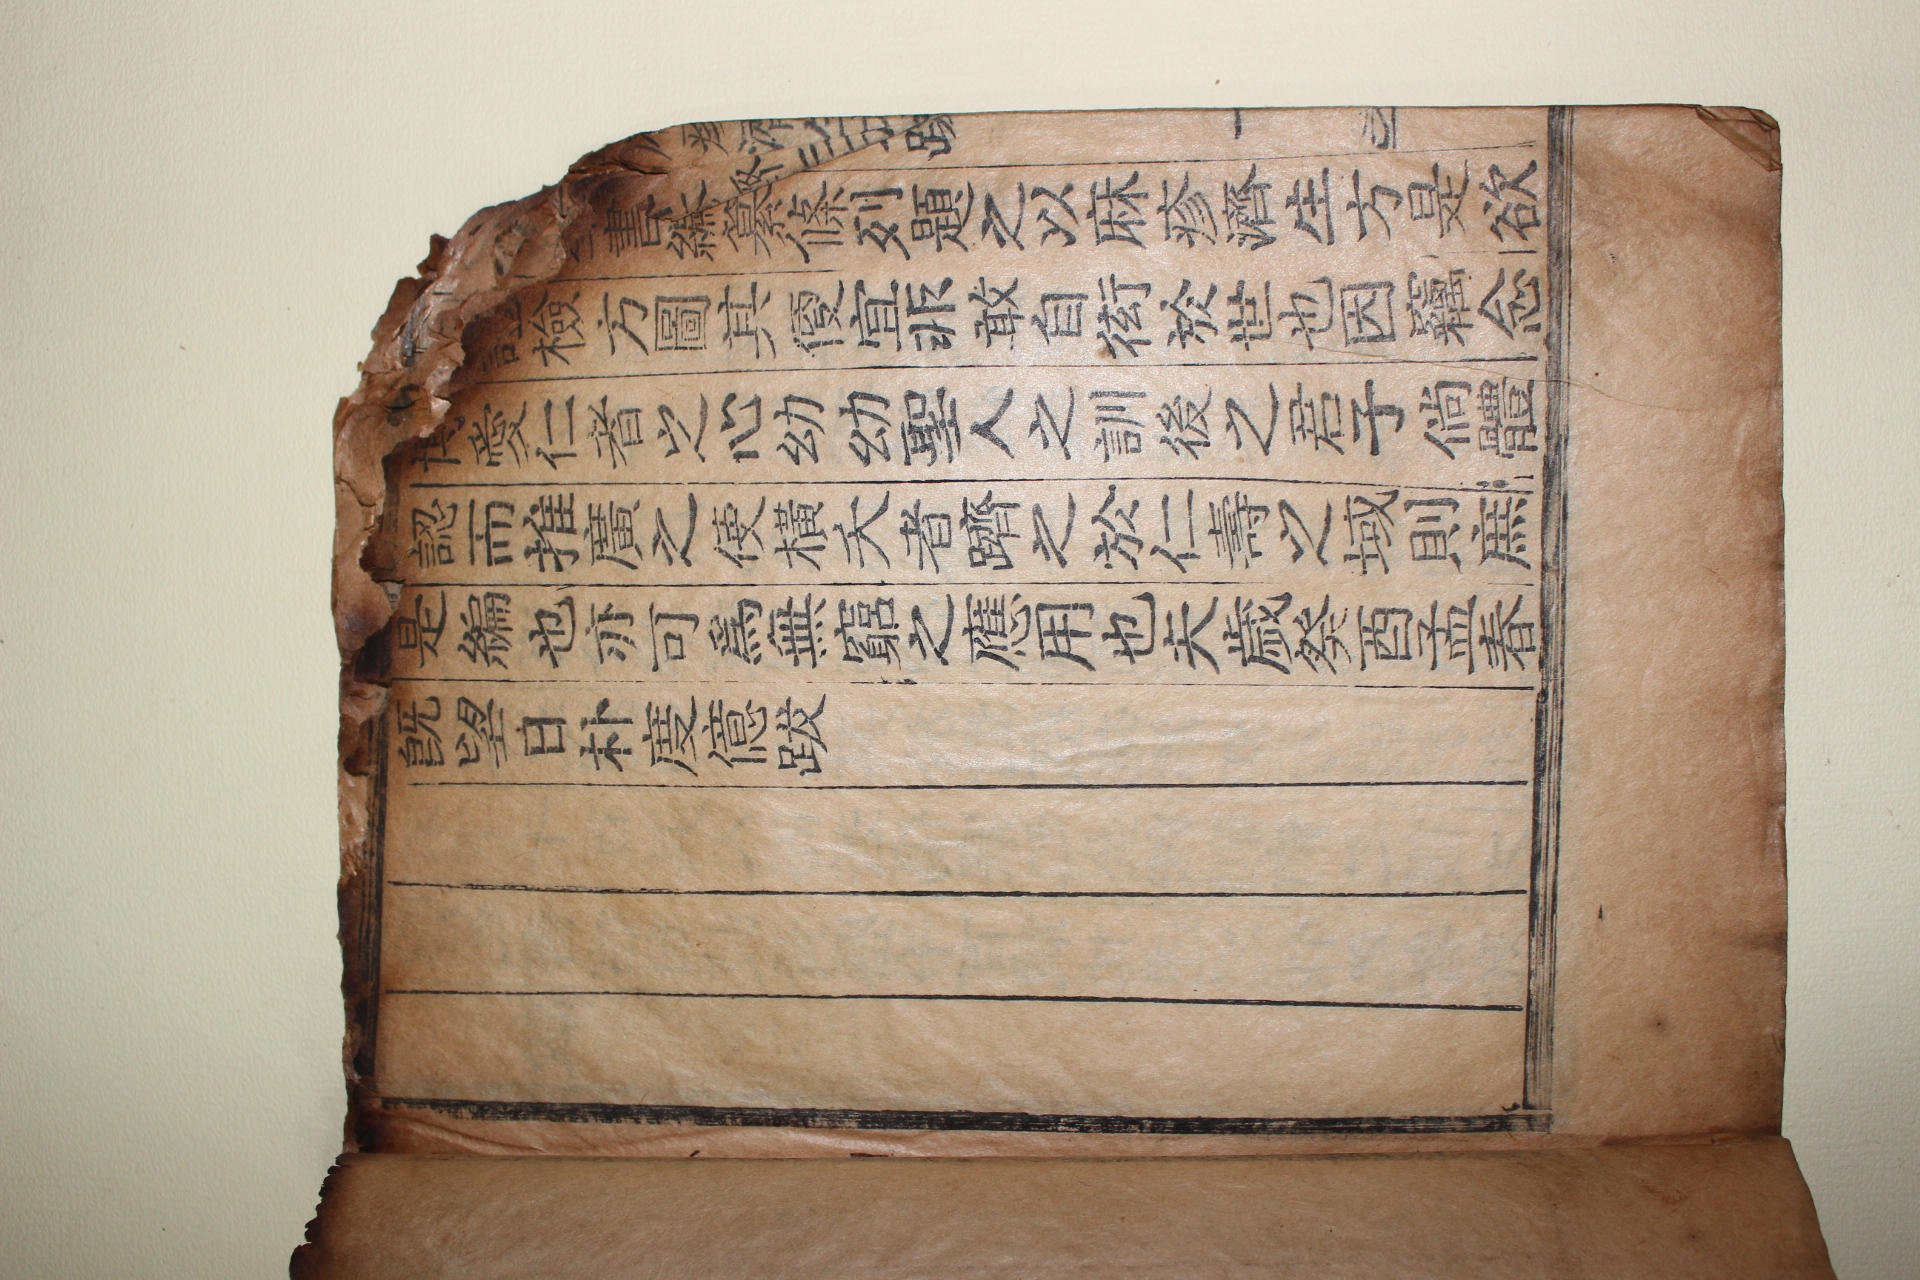 疹濟生方跋
書編纂條列題之以麻疹濟生方是欲
證檢方圖其便宜非敢自衒於世也因竊念
博愛仁者之心幼幼聖人之訓後之君子倘體
認而推廣之使橫夭者躋之於仁壽之域則庶
是編也亦可爲無窮之應用也夫歲癸酉孟春
旣望日朴度億跋